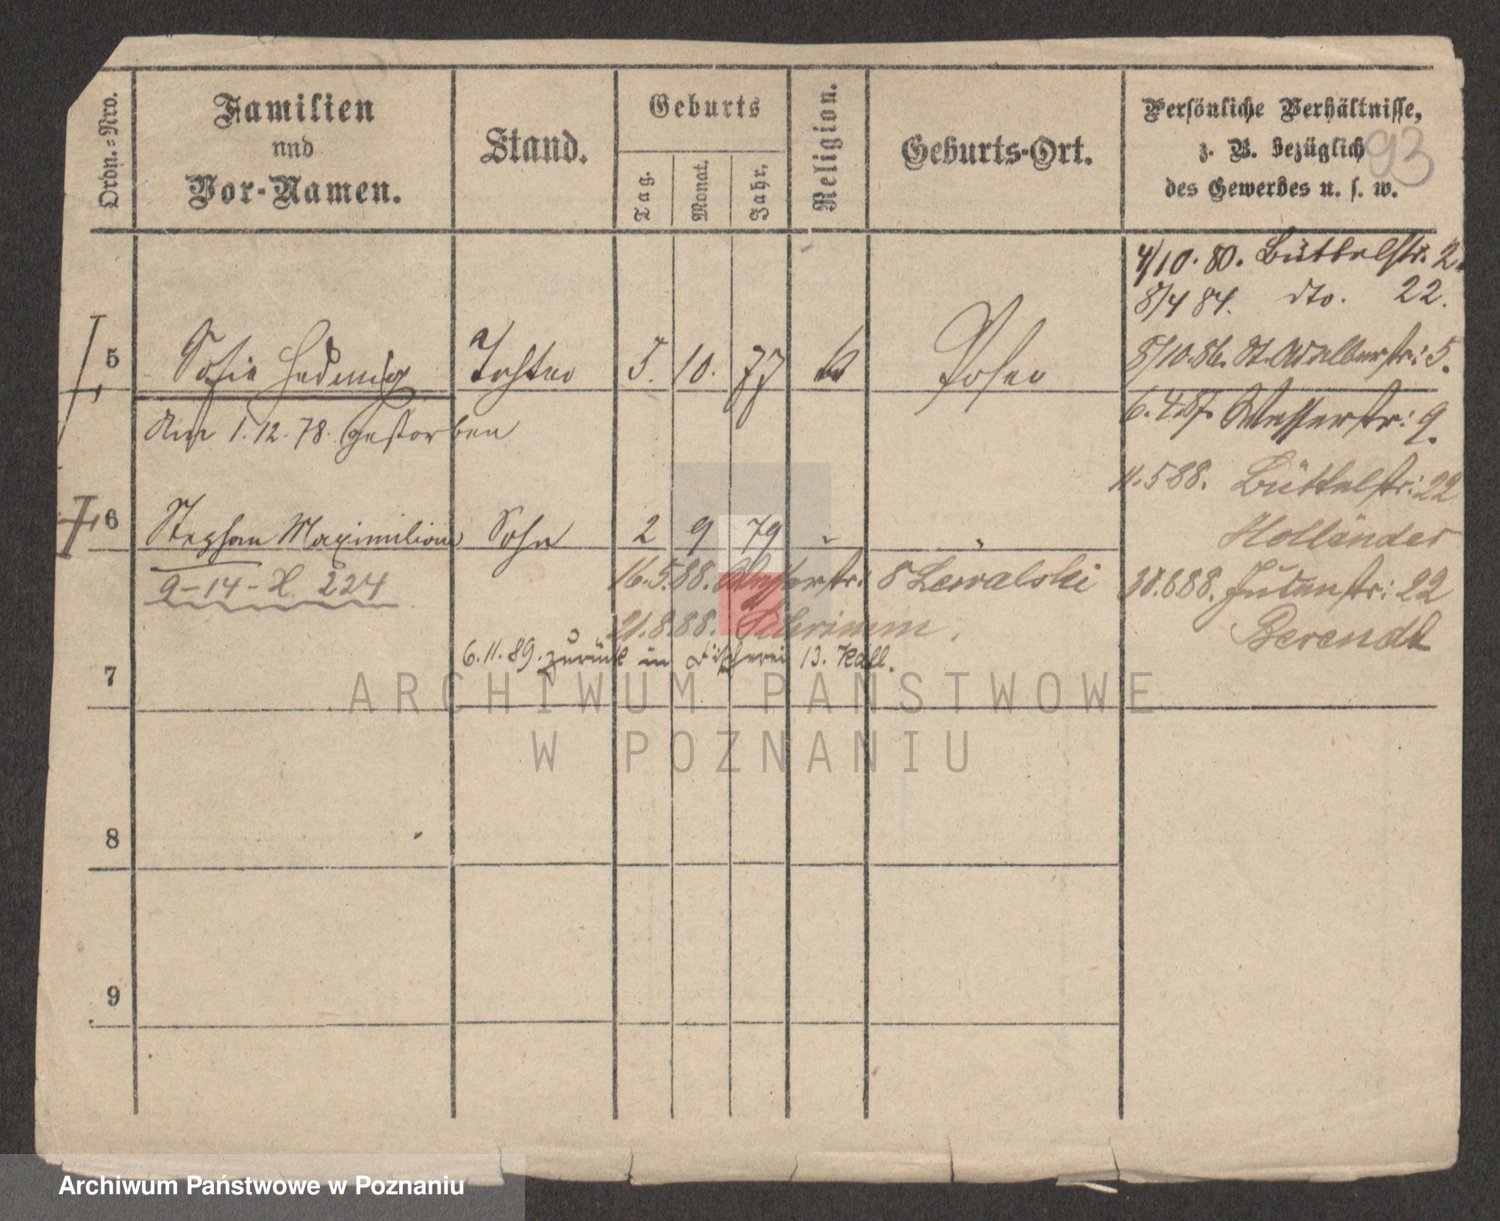 Ordn.-Nro.
Familien
und
Vor-Namen.
Stand.
Geburts
Tag.
Monat.
Jahr.
Religion.
Geburts-Ort.
Persönliche Verhältnisse,
z. B. bezüglich
des Gewerbes u. s. w.
93
4/10. 80. Büttelstr. 2.
8/4 84. dto. 22.
5 Sofie Hedwig Tochter 5. 10. 77 Posen
8/10. 86. St. Adalbertstr: 5.
am 1.12.78. gestorben
6.4.87. Wasserstr: 9.
11.5 88. Büttelstr: 22
Holländer
6 Stephan Maximilian Sohn 2 9 79 " "
9-14-X 224
16.5.88. Wasserstr: 8 Lewalski
30.6.88. Judenstr: 22
Berendt
21.8.88. Schrimm.
6.11.89. zurück in Fischerei 13. Kall.
7
8
9
ARCHIWUM PAŃSTWOWE
W POZNANIU
Archiwum Państwowe w Poznaniu